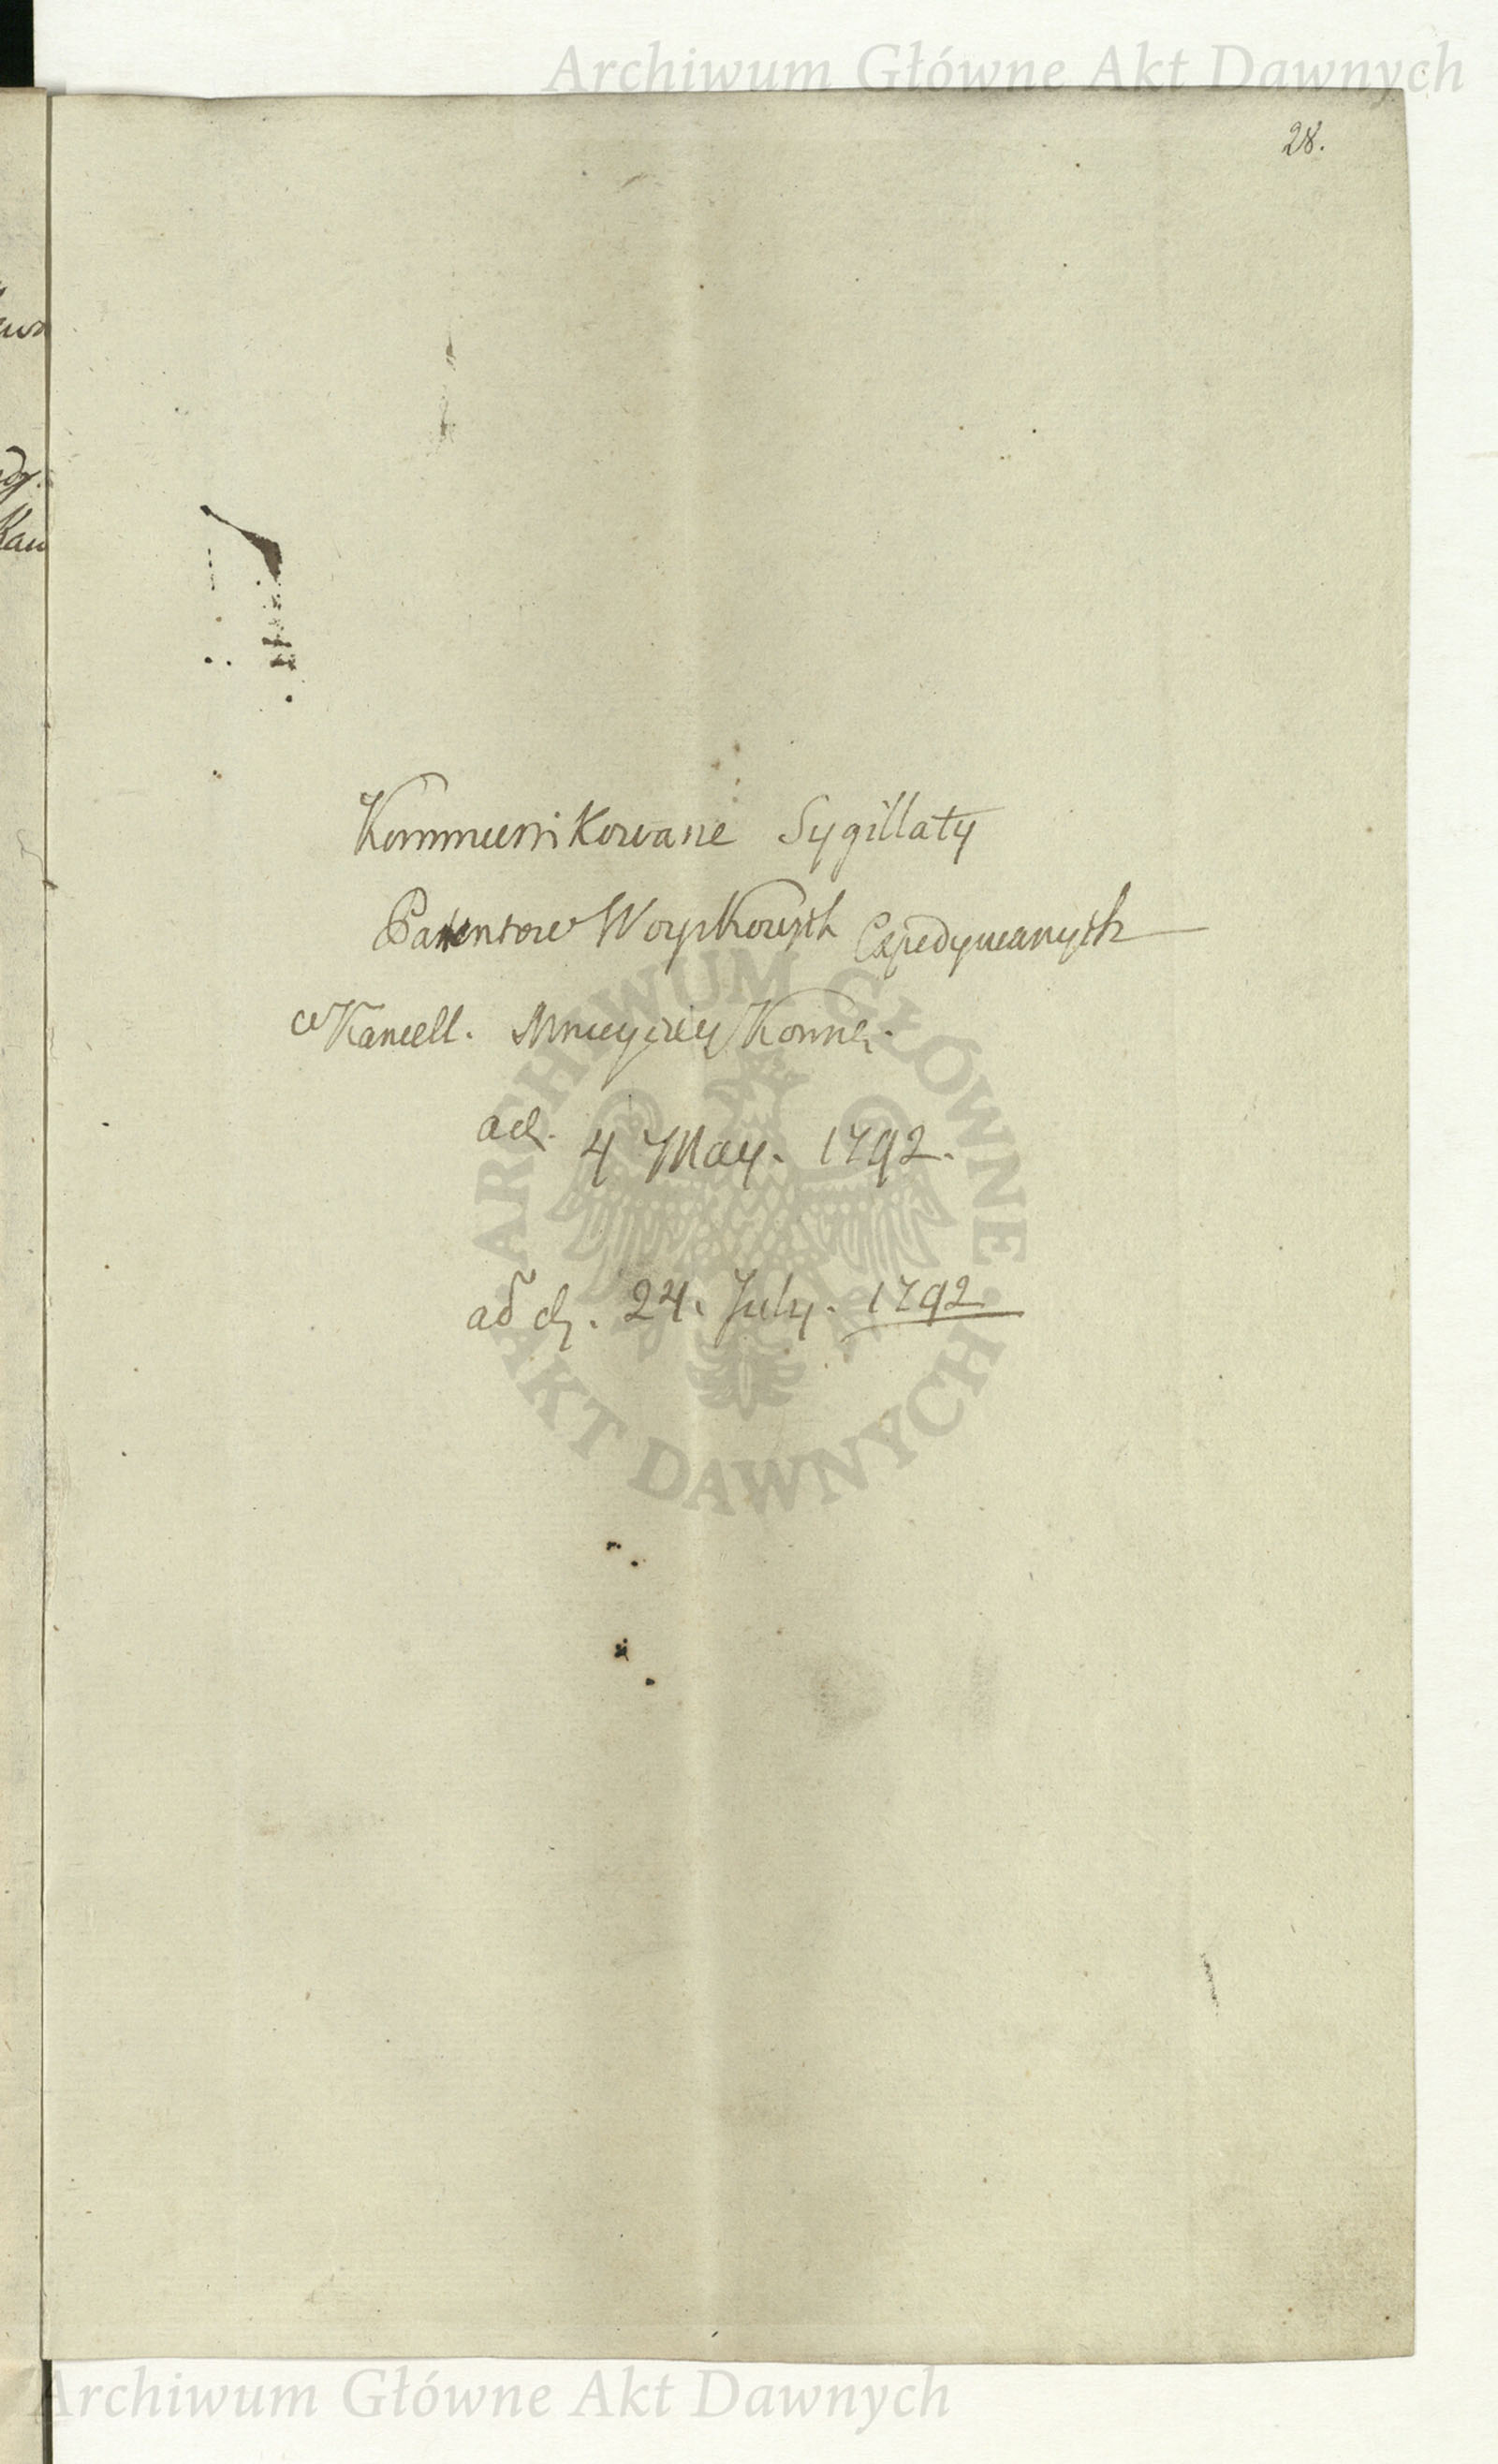 Archiwum Główne Akt Dawnych
28.
Kommunikowane Sygillaty
Patentow Woyskowych Expedyowanych
w Kancell. Mnieyszey Koronney.
ad. 4 May. 1792.
ad d. 24. July. 1792
ARCHIWUM GŁÓWNE AKT DAWNYCH
Archiwum Główne Akt Dawnych